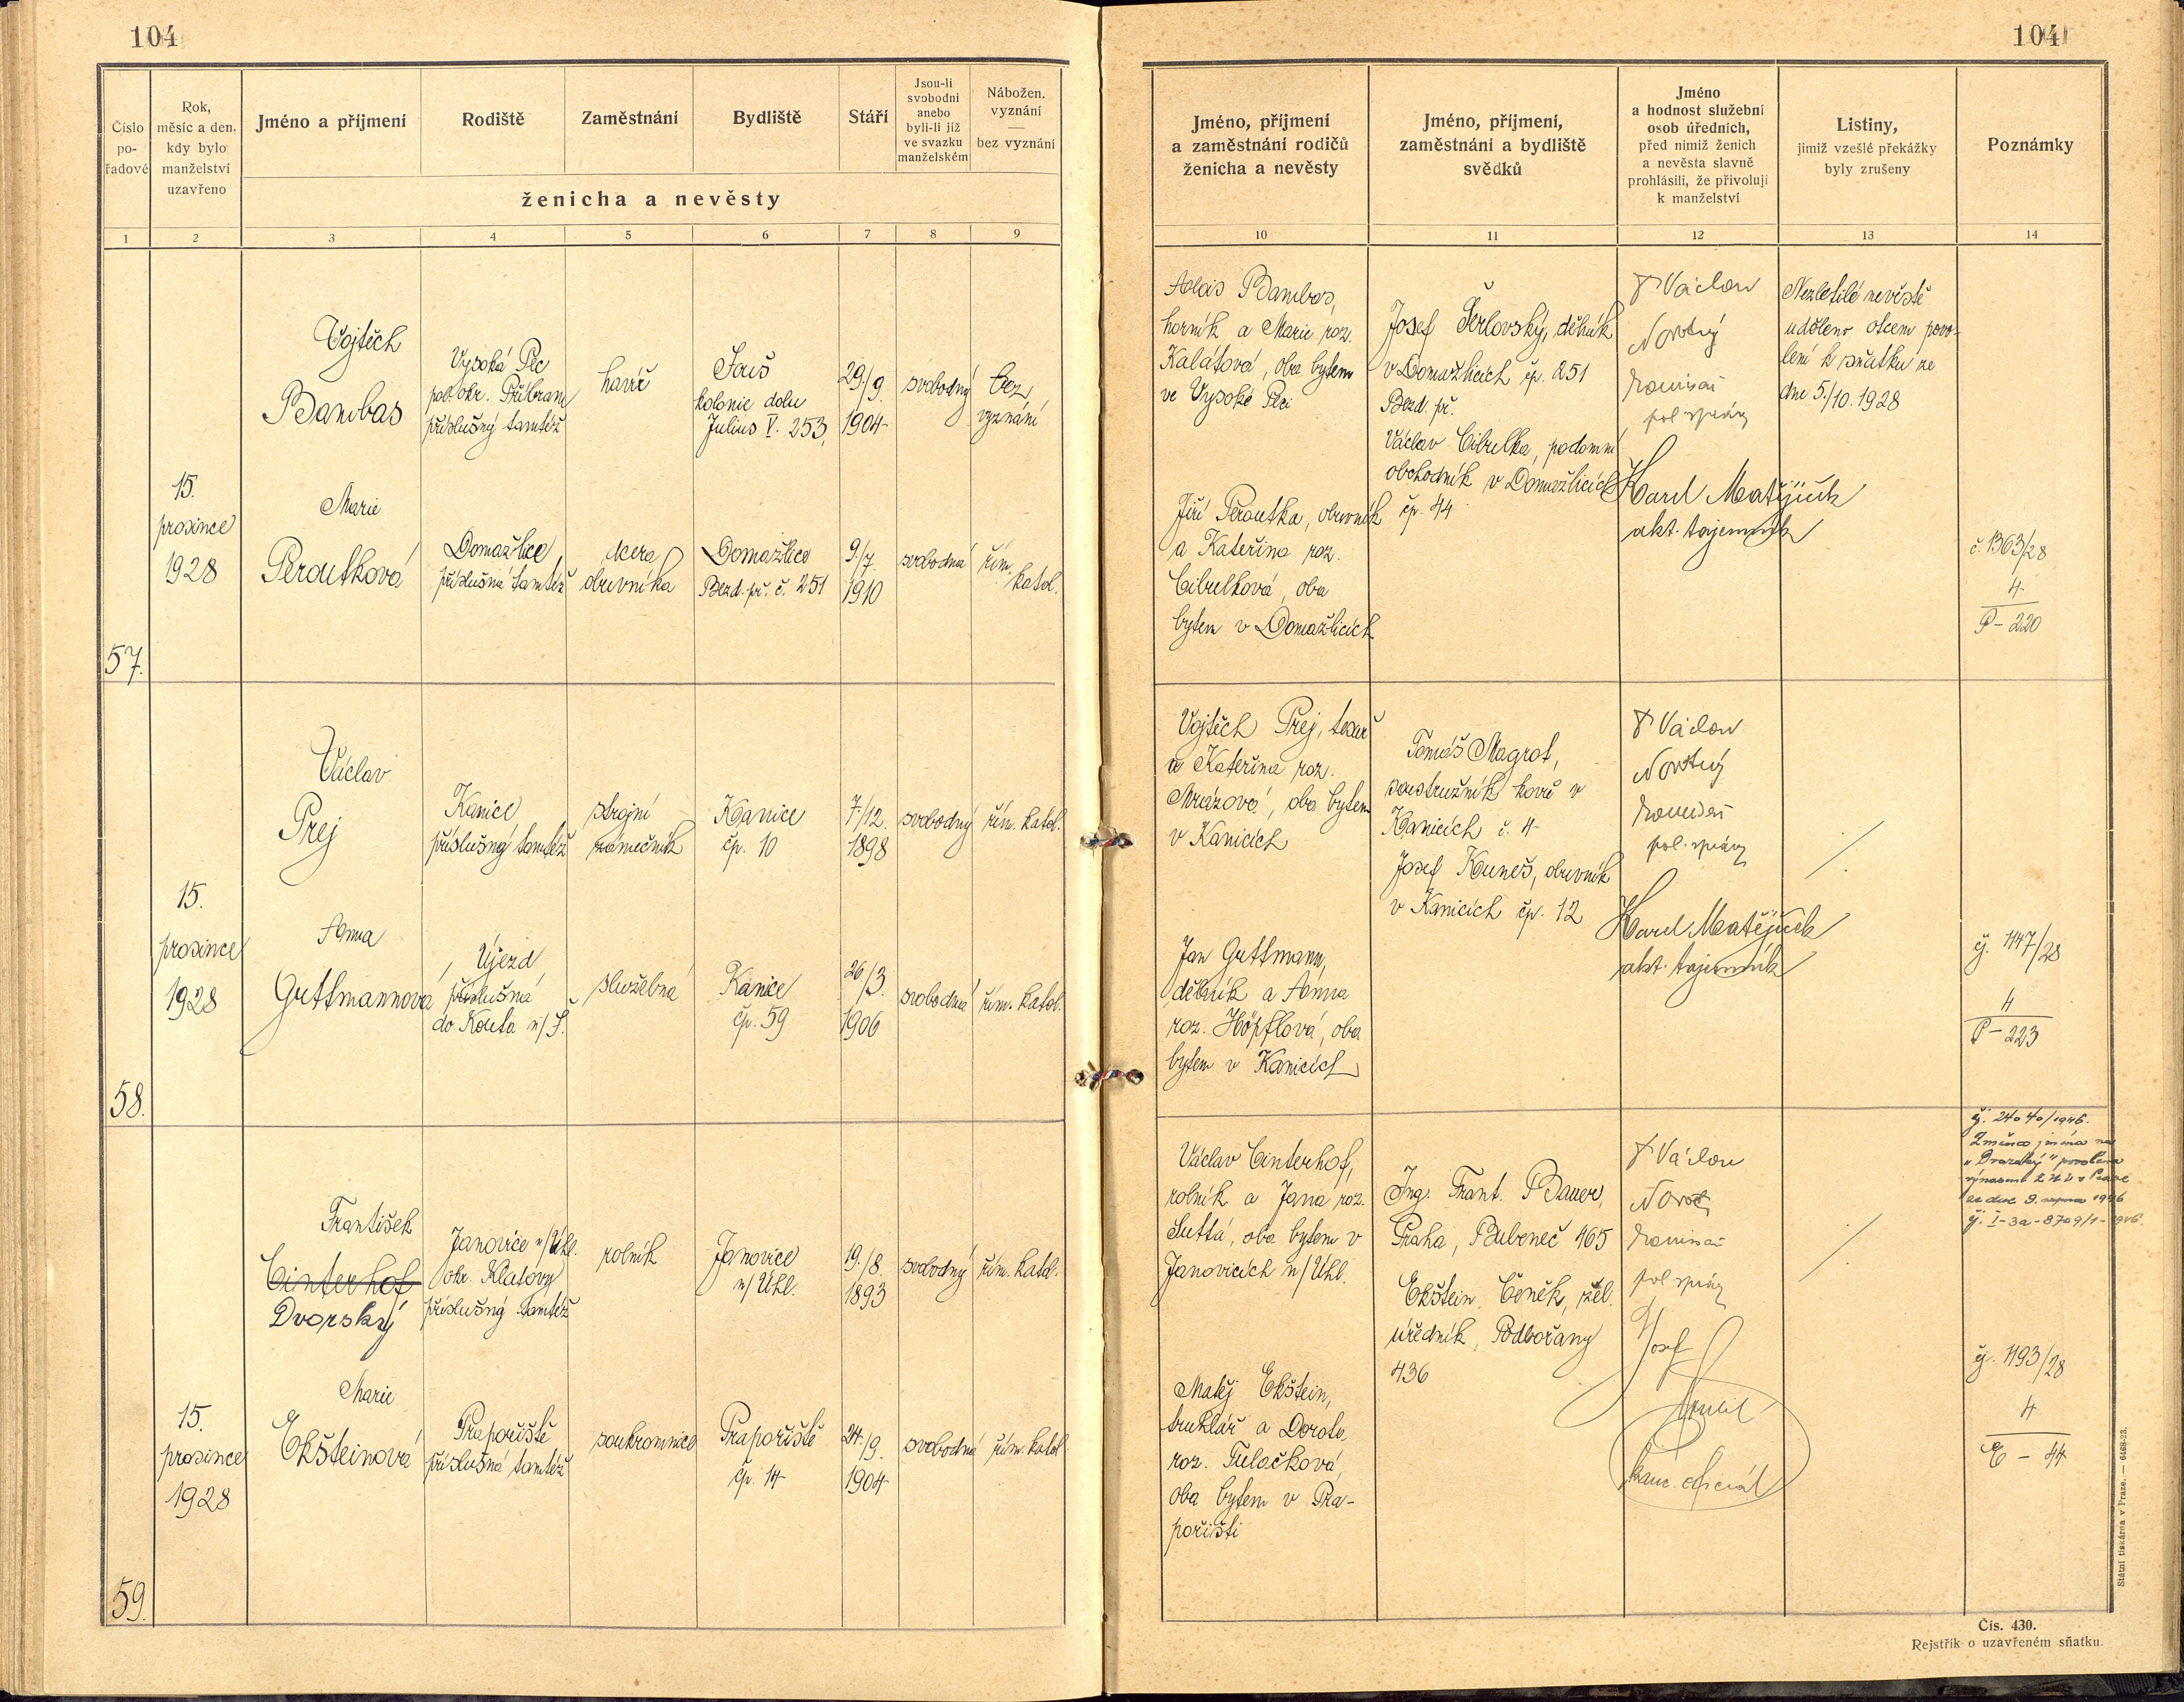 104
104
Číslo
po-
řadové
Rok,
měsíc a den,
kdy bylo
manželství
uzavřeno
Jméno a příjmení
Rodiště
Zaměstnání
Bydliště
Stáří
Jsou-li
svobodni
anebo
byli-li již
ve svazku
manželském
Nábožen.
vyznání
—
bez vyznání
ženicha a nevěsty
Jméno, příjmení
a zaměstnání rodičů
ženicha a nevěsty
Jméno, příjmení,
zaměstnání a bydliště
svědků
Jméno
a hodnost služební
osob úředních,
před nimiž ženich
a nevěsta slavně
prohlásili, že přivolují
k manželství
Listiny,
jimiž vzešlé překážky
byly zrušeny
Poznámky
1 2 3 4 5 6 7 8 9 10 11 12 13 14
57.
15.
prosince
1928
Vojtěch
Bambas
Vysoká Pec
pol. okr. Příbram
příslušný tamtéž
havíř
Souš
kolonie dolu
Julius V. 253,
29./9.
1904
svobodný
bez
vyznání
Marie
Peroutková
Domažlice,
příslušná tamtéž
dcera
obuvníka
Domažlice
Bezd. př. č. 251
9./7.
1910
svobodná
řím.
katol.
Alois Bambas,
horník a Marie roz.
Kalátová, oba bytem
ve Vysoké Peci
Jiří Peroutka, obuvník
a Kateřina roz.
Cibulková, oba
bytem v Domažlicích
Josef Šerlovský, dělník
v Domažlicích čp. 251
Bezd. př.
Václav Cibulka, podomní
obchodník v Domažlicích
čp. 44
Václav
Novotný
komisař
pol. správy
Karel Matějíček
akt. tajemník
Nezletilé nevěstě
uděleno otcem povo-
lení k sňatku ze
dne 5./10. 1928
č. 1363/28
4
P - 220
58.
15.
prosince
1928
Václav
Prej
Kanice,
příslušný tamtéž
strojní
zámečník
Kanice
čp. 10
7./12.
1898
svobodný
řím. katol.
Anna
Guttmannová
Újezd,
příslušná
do Kouta n/Š.
služebná
Kanice
čp. 59
26/3.
1906
svobodná
řím. katol.
Vojtěch Prej, tesař
a Kateřina roz.
Mrázová, oba bytem
v Kanicích
Jan Guttmann,
dělník a Anna
roz. Höpflová, oba
bytem v Kanicích
Tomáš Magrot,
soustružník kovů v
Kanicích č. 4
Josef Kuneš, obuvník
v Kanicích čp. 12
Václav
Novotný
komisař
pol. správy
Karel Matějíček
akt. tajemník
čj. 1147/28
4
P - 223
59.
15.
prosince
1928
František
Cinterhof
Dvorský
Janovice n/Úhl.
okr. Klatovy
příslušný tamtéž
rolník
Janovice
n/Úhl.
19./8.
1893
svobodný
řím. katol.
Marie
Ekšteinová
Prapořiště
příslušná tamtéž
soukromnice
Prapořiště
čp. 14
24./9.
1904
svobodná
řím. katol.
Václav Cinterhof,
rolník a Jana roz.
Suttá, oba bytem v
Janovicích n/Úhl.
Matěj Ekštein,
truhlář a Dorota
roz. Tulačková,
oba bytem v Pra-
pořišti
Ing. Frant. Bauer,
Praha, Bubeneč 465
Ekštein Čeněk, žel.
úředník, Podbořany
436
Václav
Novot
komisař
pol. správy
Josef
kanc. oficiál
čj. 24040/1946.
Změna jména na
"Dvorský" povolena
výnosem ZNV v Praze
ze dne 9. srpna 1946
čj. I-3a-8709/1-1946.
čj. 1193/28
4
E - 44
Státní tiskárna v Praze. — 6468-23.
Čís. 430.
Rejstřík o uzavřeném sňatku.